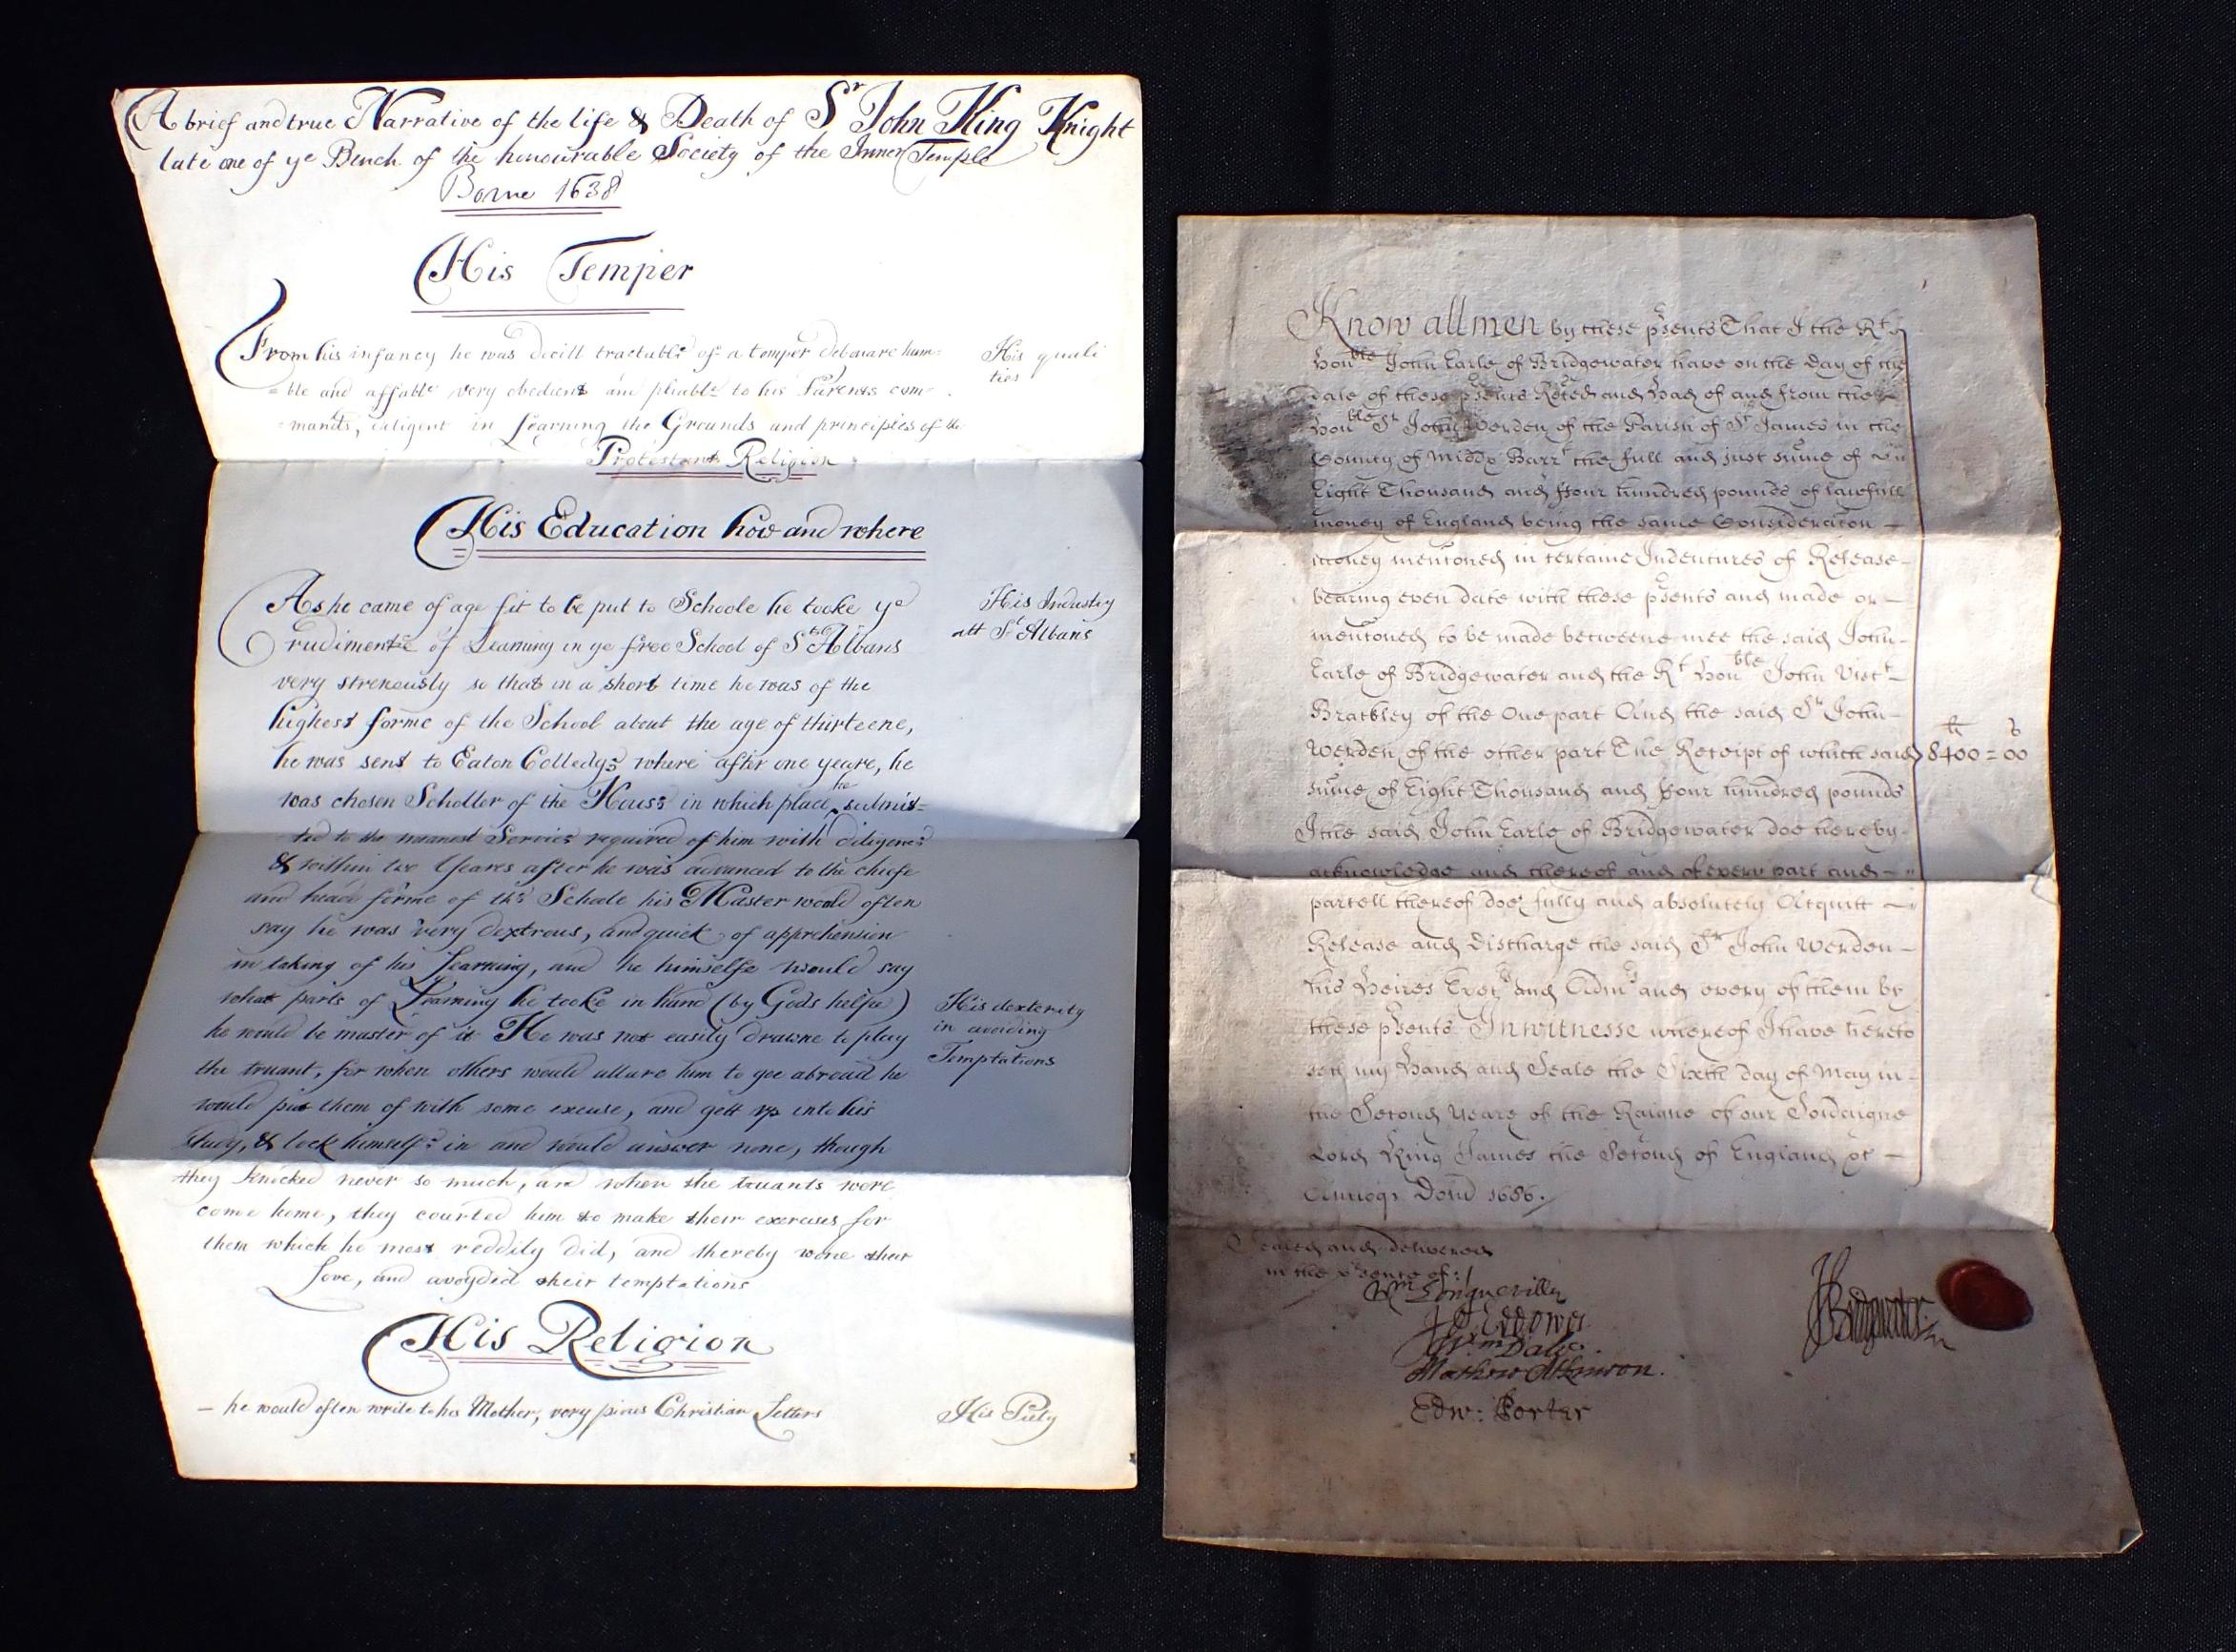 A brief and true Narrative of the life & Death of Sr John King Knight
late one of ye Bench of the honourable Society of the Inner Temple
Borne 1638
His Temper
From his infancy he was docill tractable of a temper debonare hum=
=ble and affable very obedient and pliable to his Parents com=
=mands, diligent in Learning the Grounds and principles of the
Protestant Religion
His quali
ties
His Education how and where
As he came of age fit to be put to Schoole he tooke ye
rudiments of Learning in ye free School of St Albans
very strenously so that in a short time he was of the
highest forme of the School about the age of thirteene,
he was sent to Eaton Colledge where after one yeare, he
was chosen Scholler of the House in which place he submit=
ted to the meanest Service required of him with diligence
& within two Yeares after he was advanced to the chiefe
and heade forme of the Schoole his Master would often
say he was very dextrous, and quick of apprehension
in taking of his Learning, and he himselfe would say
what parts of Learning he tooke in hand (by Gods helpe)
he would be master of it He was not easily drawne to play
the truant, for when others would allure him to goe abroad he
would put them of with some excuse, and gett up into his
study, & lock himselfe in and would answer none, though
they knocked never so much, and when the truants were
come home, they courted him to make their exercises for
them which he most reddily did, and thereby wone their
Love, and avoyded their temptations
His Industry
att St Albans
His dexterity
in avoiding
Temptations
His Religion
– he would often write to his Mother, very pious Christian Letters
His Piety
Know all men by these psents That I the Rt
Honble John Earle of Bridgewater have on the day of the
date of these psents Reced and had of and from the
Honble Sr John Werden of the Parish of St James in the
County of Middx Barrt the full and just sume of
Eight Thousand and ffour hundred pounds of lawfull
money of England being the same Consideracon
money mentoned in certaine Indentures of Release
bearing even date with these psents and made or
mentoned to be made betweene mee the said John
Earle of Bridgewater and the Rt Honble John Visct
Brackley of the One part And the said Sr John
Werden of the other part The Receipt of which said
sume of Eight Thousand and ffour hundred pounds
I the said John Earle of Bridgewater doe hereby
acknowledge and thereof and of every part and
parcell thereof doe fully and absolutely Acquitt
Release and discharge the said Sr John Werden
his Heires Exers and Admrs and every of them by
these psents In witnesse whereof I have hereto
sett my Hand and Seale the Sixth day of May in
the Second Yeare of the Raigne of our Soveraigne
Lord King James the Second of England &c
Annoq Dom 1686.
li s
8400 = 00
Sealed and delivered
in the psence of:
Wm Longueville
Wm Dale
Mathew Atkinson.
Edw: Porter
JBridgewater